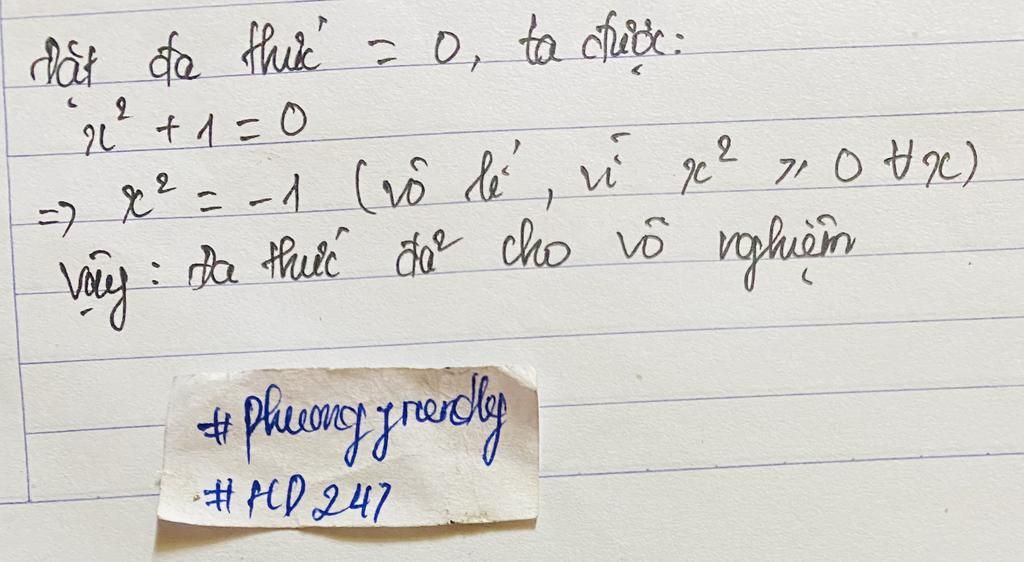 Đặt đa thức = 0, ta được:
x² + 1 = 0
=> x² = -1 (vô lí, vì x² ≥ 0 ∀x)
Vậy: Đa thức đã cho vô nghiệm
#phuongfriendly
#HD247